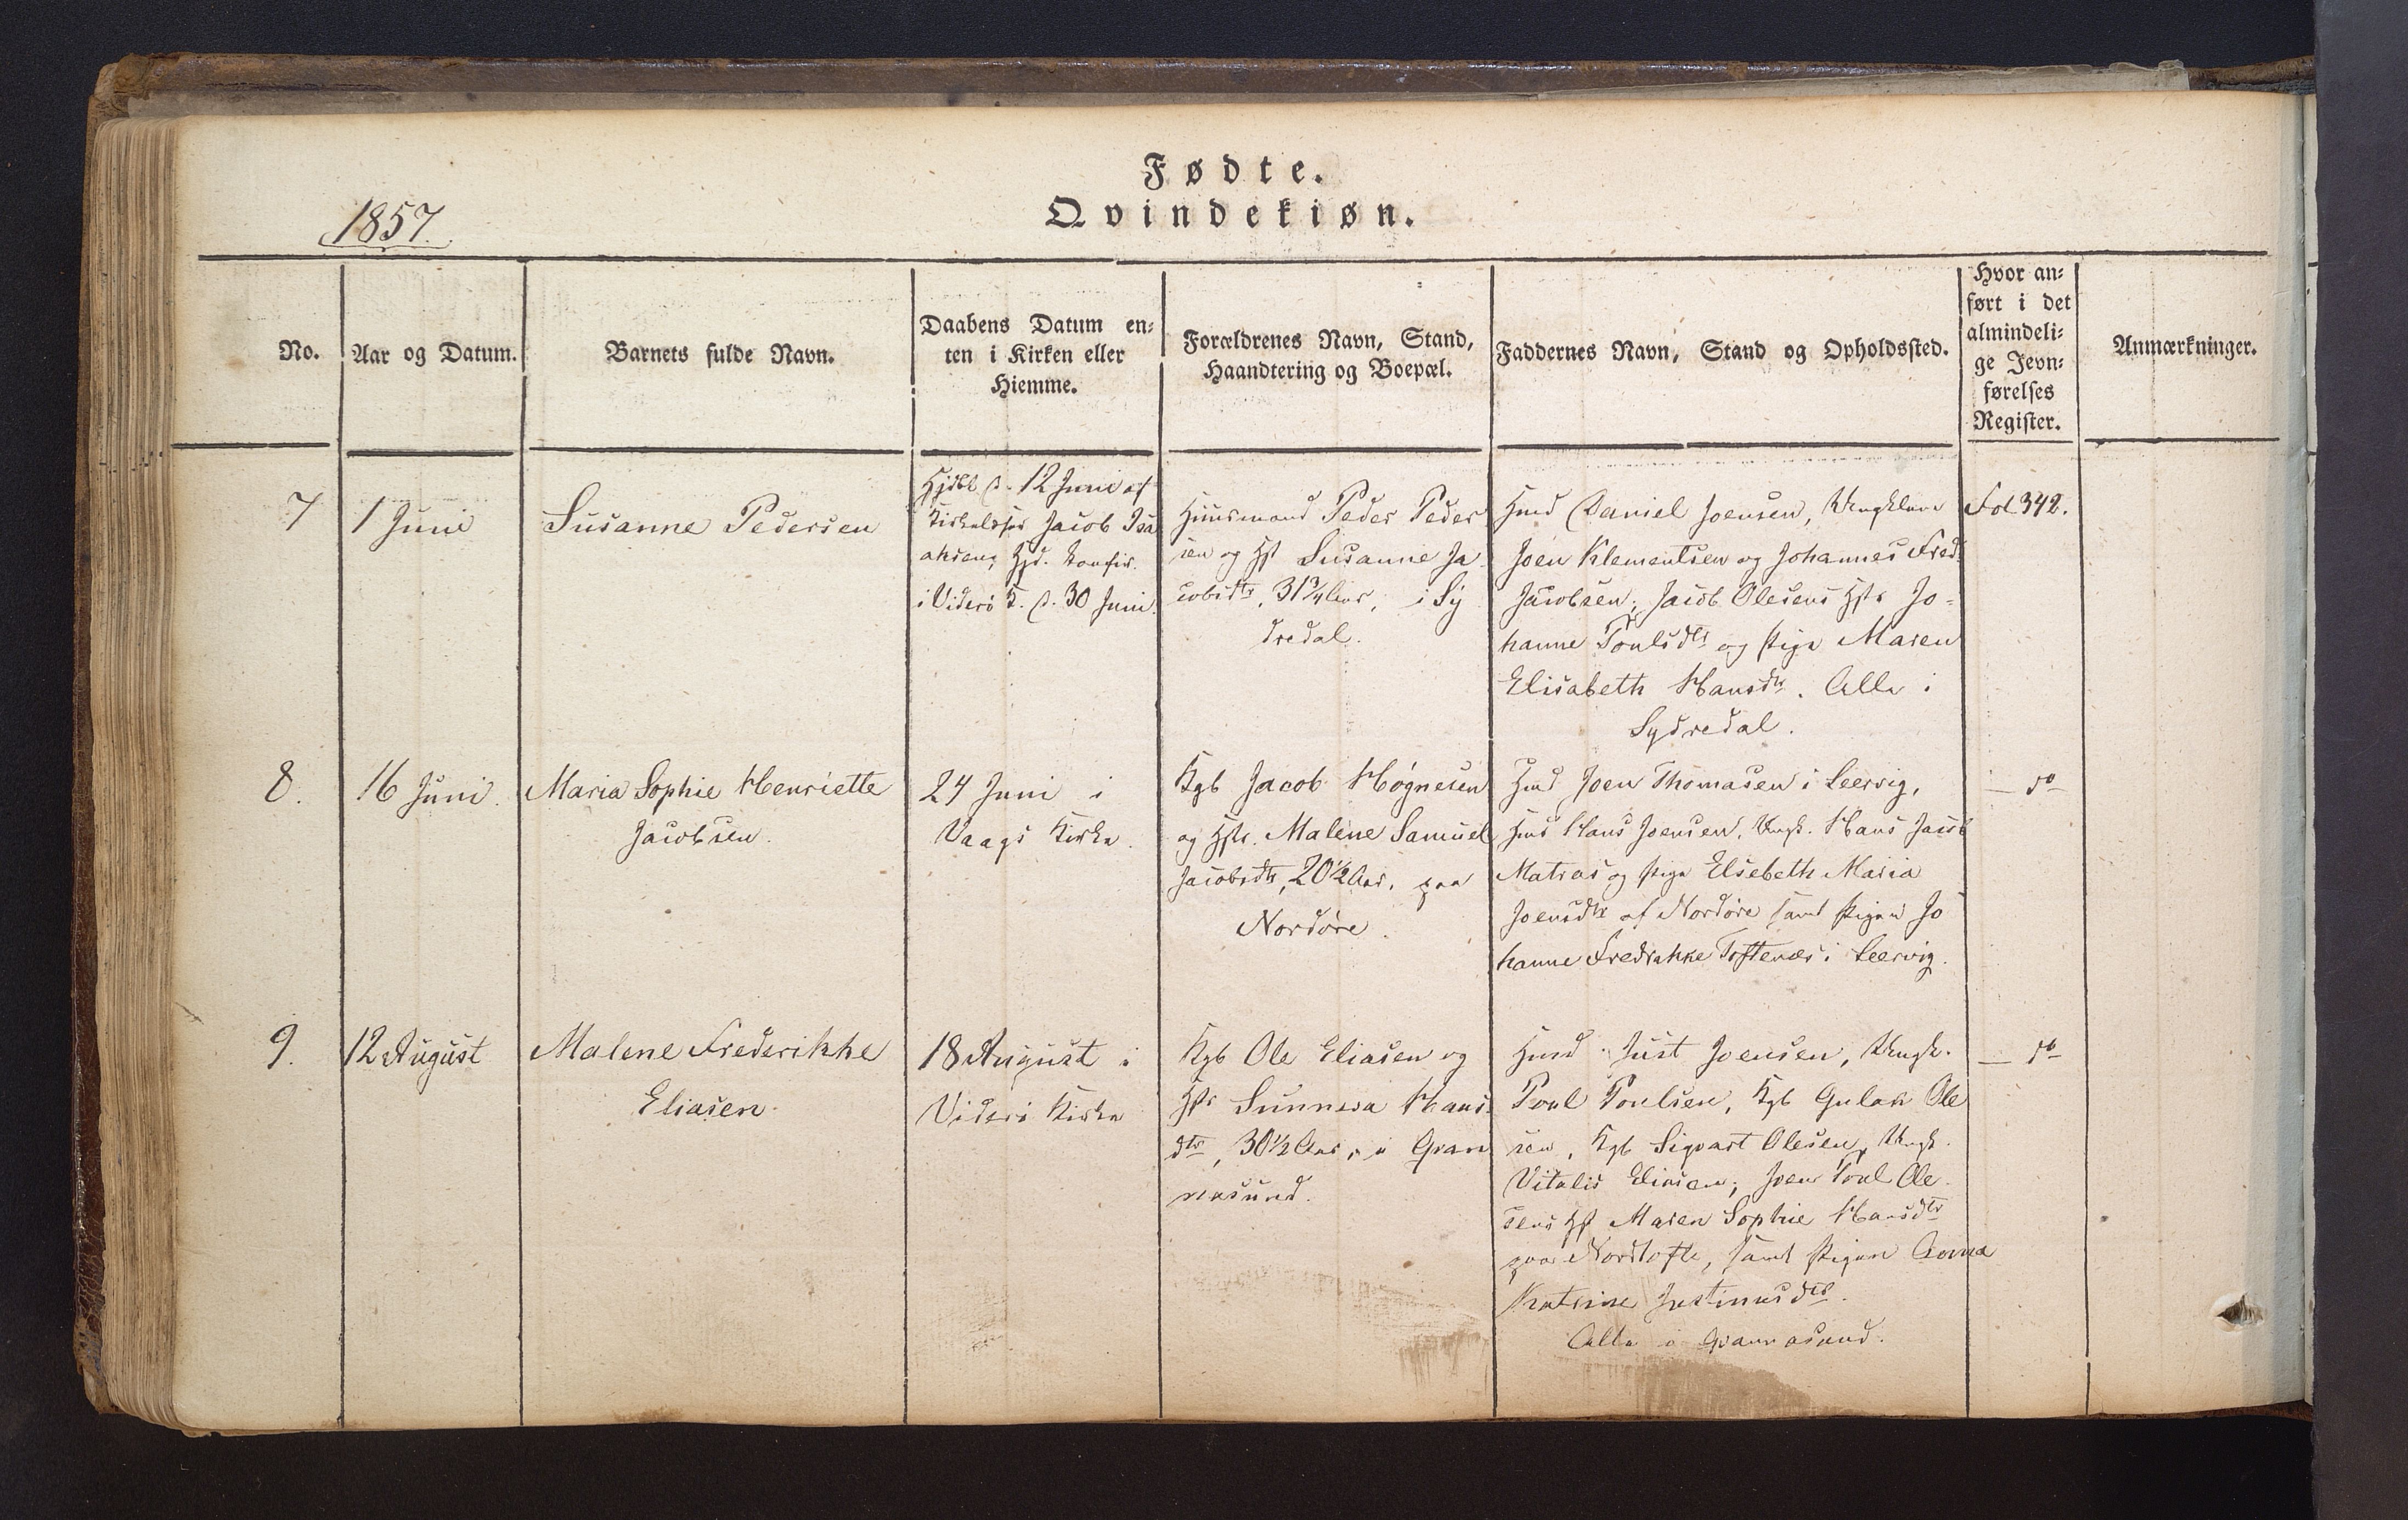 Fødte.
Qvindekiøn.
1857.
No.
Aar og Datum.
Barnets fulde Navn.
Daabens Datum en-
ten i Kirken eller
Hiemme.
Forældrenes Navn, Stand,
Haandtering og Boepæl.
Faddernes Navn, Stand og Opholdssted.
Hvor an-
ført i det
almindeli-
ge Jevn-
førelses
Register.
Anmærkninger.
7
1 Juni
Susanne Pedersen
Hjdbt d. 12 Juni af
Jacob Isa
aksen; Hjd. Confir.
i Viderö K. d. 30 Juni.
Huusmand Peder Peder
sen og Hst Susanne Ja
cobsdtr, 31 3/4 Aar, i Sy
dredal.
Hmd Daniel Joensen, Ungklene
Joen Klementsen og Johannes Fred.
Jacobsen; Jacob Olesens Hstr Jo-
hanne Poulsdtr og Pige Maren
Elisabeth Hansdtr. Alle i
Sydredal.
Fol 342.
8.
16 Juni.
Maria Sophie Henriette
Jacobsen.
24 Juni i
Vaags Kirke.
Kgb Jacob Högnesen
og Hstr. Malene Samuel
Jacobsdtr, 20 1/2 Aar, paa
Nordöre.
Hmd Joen Thomasen i Leervig,
Hmd Hans Joensen, Ungk. Hans Jacob
Matras og Pige Elsebeth Maria
Joensdtr af Nordöre samt Pigen Jo
hanne Fredrikke Toftenæs i Leervig.
— do —
9.
12 August
Malene Frederikke
Eliasen.
18 August i
Viderö Kirke
Kgb Ole Eliasen og
Hstr Sunneva Hans
dtr, 30 1/2 Aar, i Qvan
nasund.
Hmd Just Joensen, Ungk.
Poul Poulsen, Kgb Gulak Ole
sen, Kgb Sigvart Olesen, Ungk.
Vitalis Eliasen; Joen Poul Ole
sens Hst Maren Sophie Hansdtr
paa Nordtofte, samt Pigen Anna
Katrine Justinusdtr.
Alle i Qvannasund.
— do —